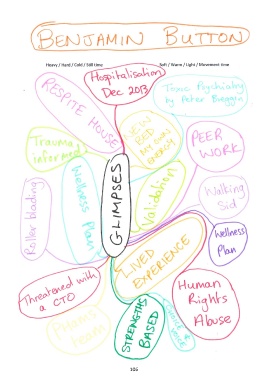 BENJAMIN BUTTON
Heavy / Hard / Cold / Still time
Soft / Warm / Light / Movement time
Hospitalisation
Dec 2013
RESPITE HOUSE
Toxic Psychiatry
by Peter Breggin
NEW
BED
MY OWN
ENERGY
Trauma
informed
PEER
WORK
GLIMPSES
Validation
Wellness Plan
Roller blading
Walking
Sid
Wellness
Plan
LIVED
EXPERIENCE
Threatened with
a CTO
Human
Rights
Abuse
STRENGTHS
BASED
106